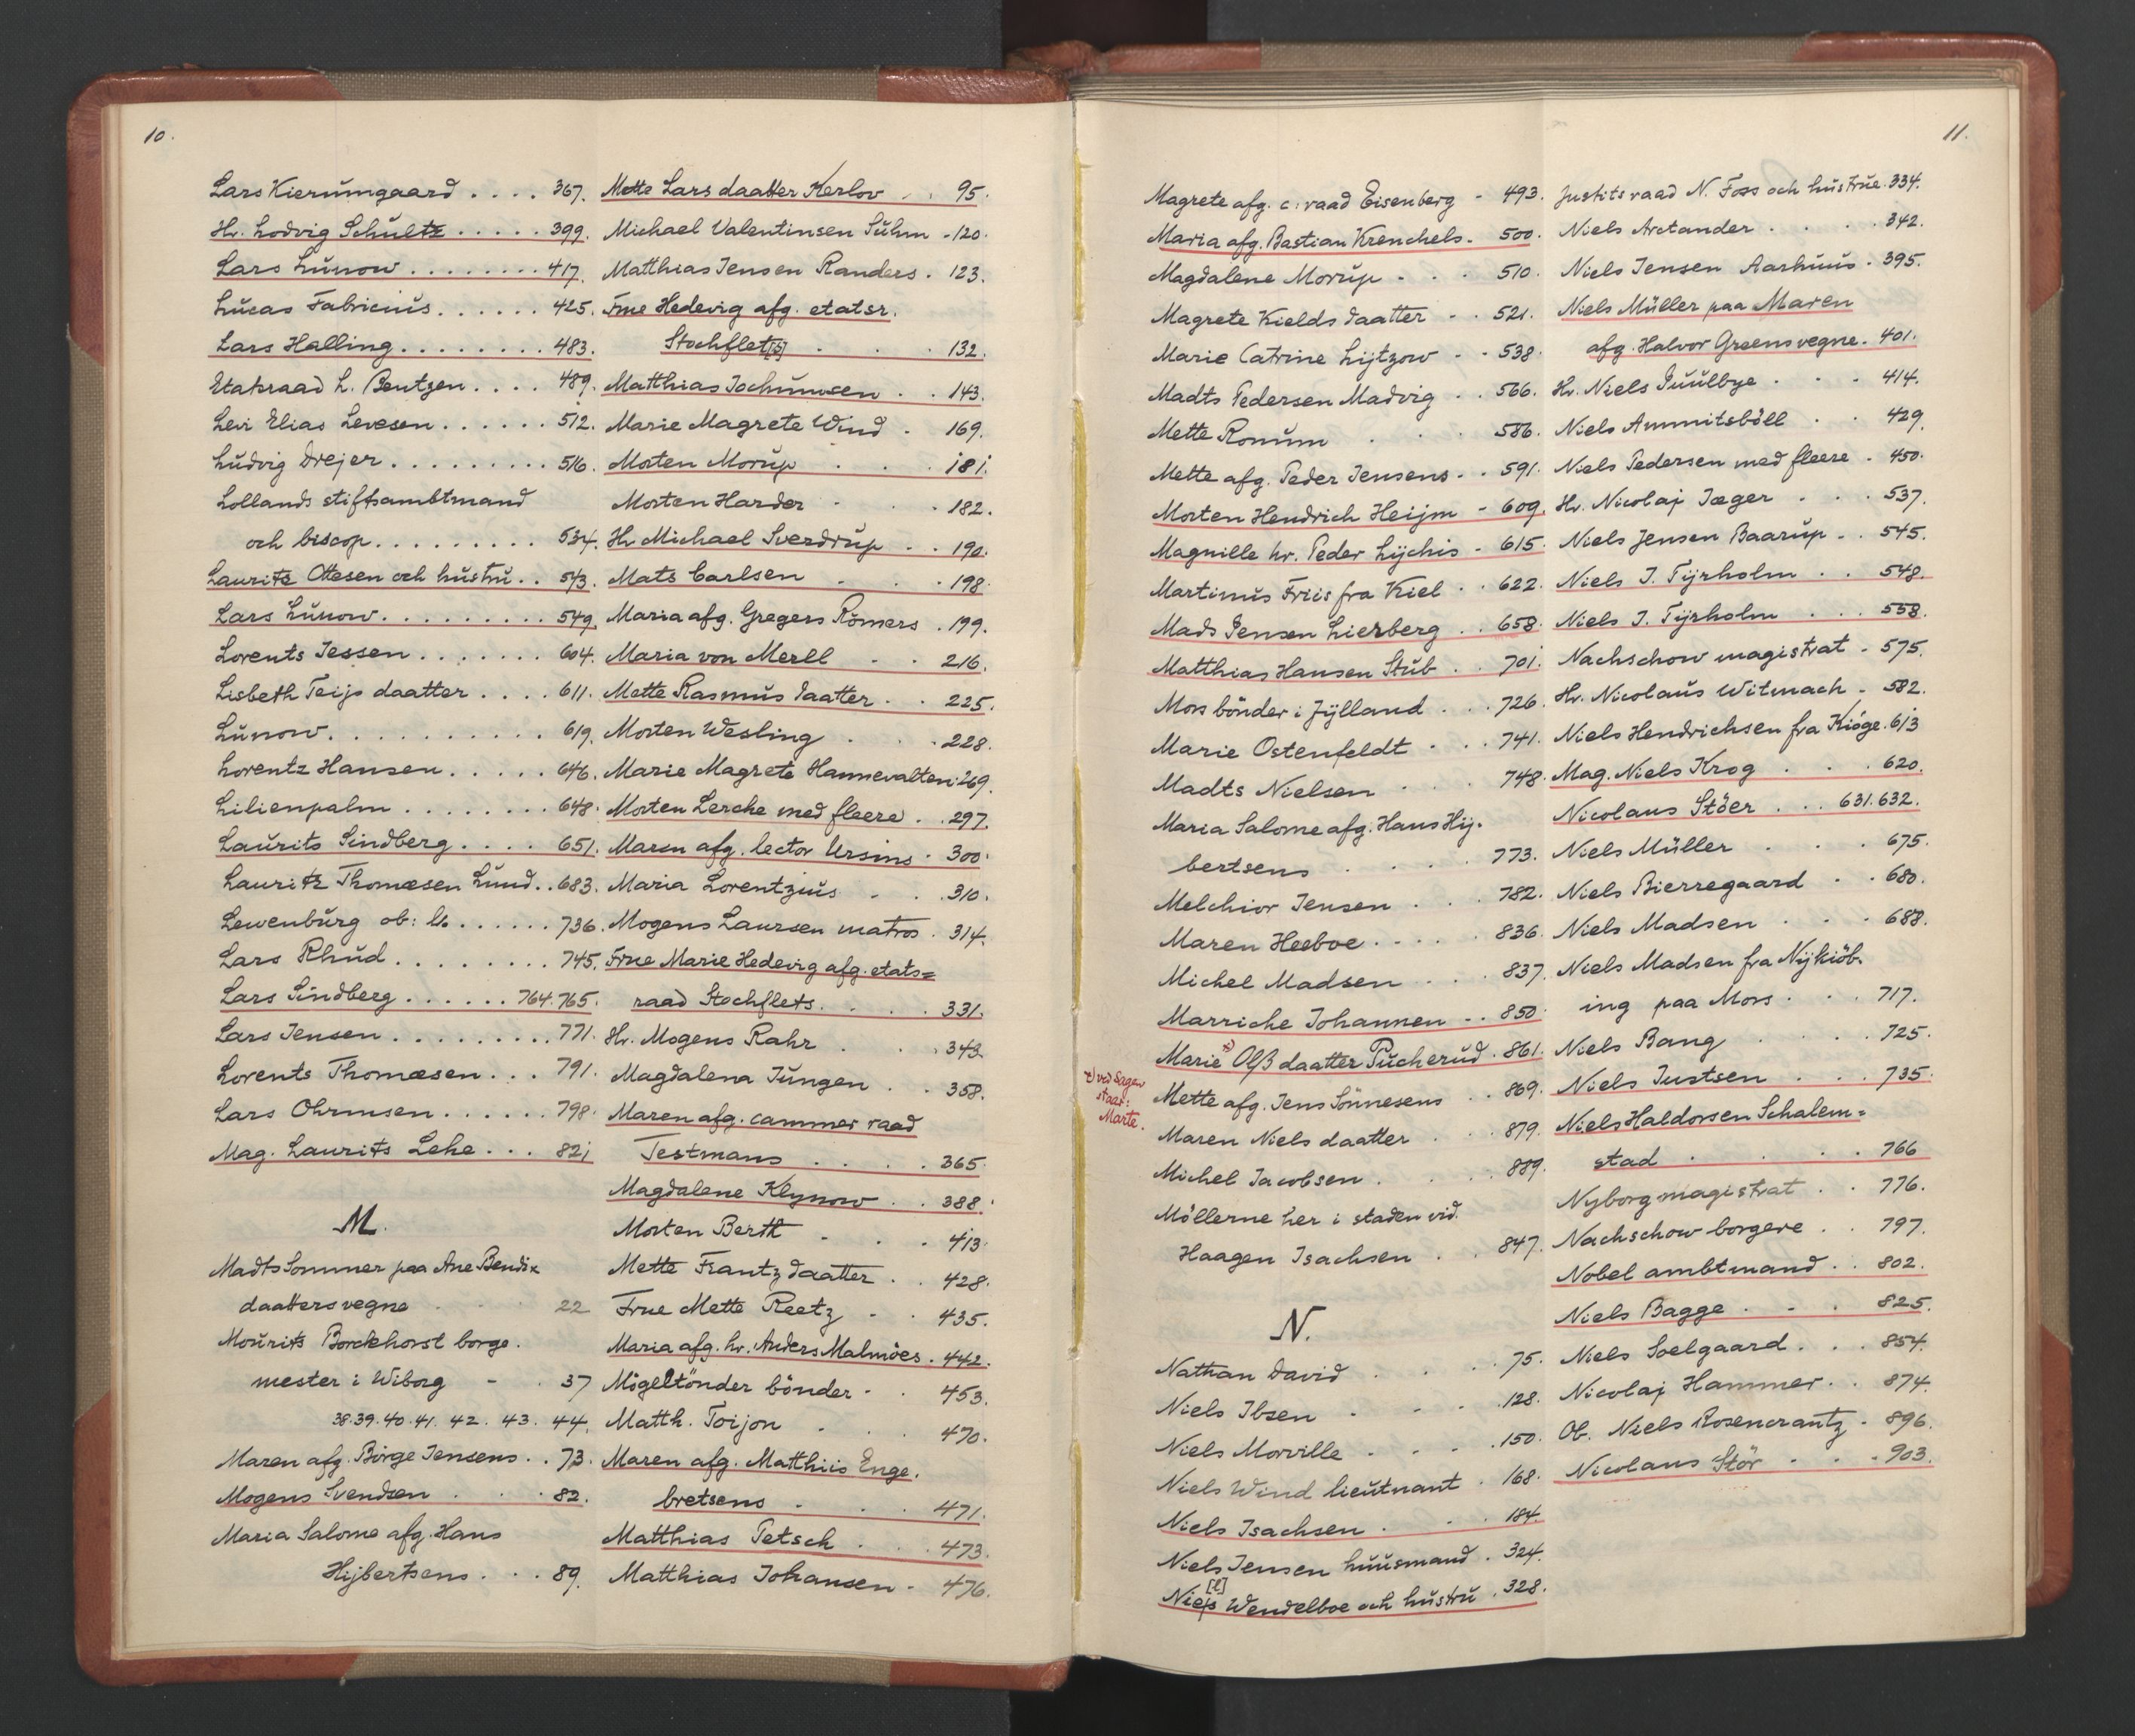 10.
Lars Kierumgaard .... 367.
Hr. Lodvig Schultz ..... 399.
Lars Lunow ........ 417.
Lucas Fabricius ...... 425.
Lars Halling ........ 483.
Etatsraad L. Bentzen .... 489.
Levi Elias Levesen ...... 512.
Ludvig Drejer ......... 516.
Lollands stiftsambtmand
och biscop ......... 534.
Lauritz Ottesen och hustru .. 543.
Lars Lunow ......... 549.
Lorents Jessen ....... 604.
Lisbeth Teijs daatter .... 611.
Lunow .......... 619.
Lorentz Hansen ..... 646.
Lilienpalm ........ 648.
Laurits Sindberg .... 651.
Lauritz Thomæsen Lund .. 683.
Lewenburg ob: lt. ...... 736.
Lars Rhud ........ 745.
Lars Sindberg ...... 764.765.
Lars Jensen ......... 771.
Lorents Thomæsen ... 791.
Lars Ohrmsen ...... 798.
Mag. Laurits Lehe ... 821
M.
Madts Sommer paa Ane Bendix
daatters vegne 22
Mourits Borckhorst borge-
mester i Wiborg - . 37
38.39.40.41. 42. 43. 44.
Maren afg. Börge Jensens .. 73.
Mogens Svendsen ... 82.
Maria Salome afg. Hans
Hijbertsens ... 89.
Mette Lars daatter Kerlov .. 95.
Michael Valentinsen Suhm - 120.
Matthias Jensen Randers . 123.
Frue Hedevig afg. etatsr.
Stochflet[s] ... 132.
Matthias Jochumsen .. 143.
Marie Magrete Wind - 169.
Morten Morup ... 181.
Morten Harder - . 182.
Hr Michael Sverdrup .. 190.
Mats Carlsen ... 198.
Maria afg. Gregers Römers . 199.
Maria von Merll - . 216.
Mette Rasmus daatter .. 225.
Morten Wesling ... 228.
Marie Magrete Hannevalten . 269.
Morten Lerche med fleere .. 297.
Maren afg. lector Ursins . 300.
Maria Lorentzius - . 310.
Mogens Laursen matros . 314.
Frue Marie Hedevig afg. etats=
raad Stochflets .... 331.
Hr. Mogens Rahr ... 343.
Magdalena Jungen .. 358.
Maren afg. cammer raad
Testmans .... 365.
Magdalene Klynow .. 388.
Morten Berth - .. 413.
Mette Frantz daatter .. 428.
Frue Mette Reetz - . 435.
Maria afg. hr. Anders Malmöes . 442.
Mögeltönder bönder - . 453.
Matth. Toijon ... 470.
Maren afg. Matthiis Enge-
bretsens - .. 471.
Matthias Petsch ... 473.
Matthias Johansen - 476.
11.
Magrete afg. c: raad Eisenberg - 493.
Maria afg. Bastian Krenchels - 500.
Magdalene Morup - .. 510.
Magrete Kields daatter - . 521.
Marie Catrine Lijtzow - - 538.
Madts Pedersen Madvig .. 566.
Mette Romum ... 586.
Mette afg. Peder Jensens - . 591.
Morten Hendrich Heijm - 609.
Magnille hr. Peder Lijchis - 615.
Martinus Friis fra Kiel .. 622.
Mads Jensen Lierberg .. 658.
Matthias Hansen Stub .. 701.
Mors bönder i Jylland ... 726.
Marie Ostenfeldt ... 741.
Madts Nielsen ... 748.
Maria Salome afg. Hans Hij-
bertsens .... 773.
Melchior Jensen ... 782.
Maren Heeboe ..... 836.
Michel Madsen ... 837.
Marriche Johannen - . 850.
Marie x) Olß daatter Pucherud . 861.
x) ved Sagen
staar:
Marte.
Mette afg. Jens Sönnesens .. 869.
Maren Niels daatter ... 879.
Michel Jacobsen .... 889.
Möllerne her i staden vid.
Haagen Isachsen .. 847.
N.
Nathan David .... 75.
Niels Ibsen - - - . 128.
Niels Morville - - - . 150.
Niels Wind lieutnant . 168.
Niels Isachsen . - . 184.
Niels Jensen huusmand . 324.
Nie[l]s Wendelboe och hustru . 328.
Justits raad N. Foss och hustrue . 334.
Niels Arctander .... 342.
Niels Jensen Aarhuus . 395.
Niels Müller paa Maren
afg. Halvor Greens vegne . 401.
Hr. Niels Juulbye . . - 414.
Niels Ammitsböll .. 429.
Niels Pedersen med fleere . 450.
Hr. Nicolaj Jæger ... 537.
Niels Jensen Baarup - . 545.
Niels J. Tijrholm .. 548.
Niels J. Tijrholm ... 558.
Nachschow magistrat - 575.
Hr. Nicolaus Witmach - 582.
Niels Hendrichsen fra Kiöge . 613
Mag. Niels Krog ... 620.
Nicolaus Stöer ... 631.632.
Niels Müller ... 675.
Niels Bierregaard .. 680.
Niels Madsen ... 688.
Niels Madsen fra Nijkiöb-
ing paa Mors ... 717.
Niels Bang .... 725.
Niels Justsen ... 735.
Niels Haldorsen Schalem=
stad .... 766
Nyborg magistrat .. 776.
Nachschow borgere .. 797.
Nobel ambtmand .. 802.
Niels Bagge . - . 825.
Niels Soelgaard ... 854.
Nicolaj Hammer .. 874.
Ob. Niels Rosencrantz - 896.
Nicolaus Stör - . - 903.